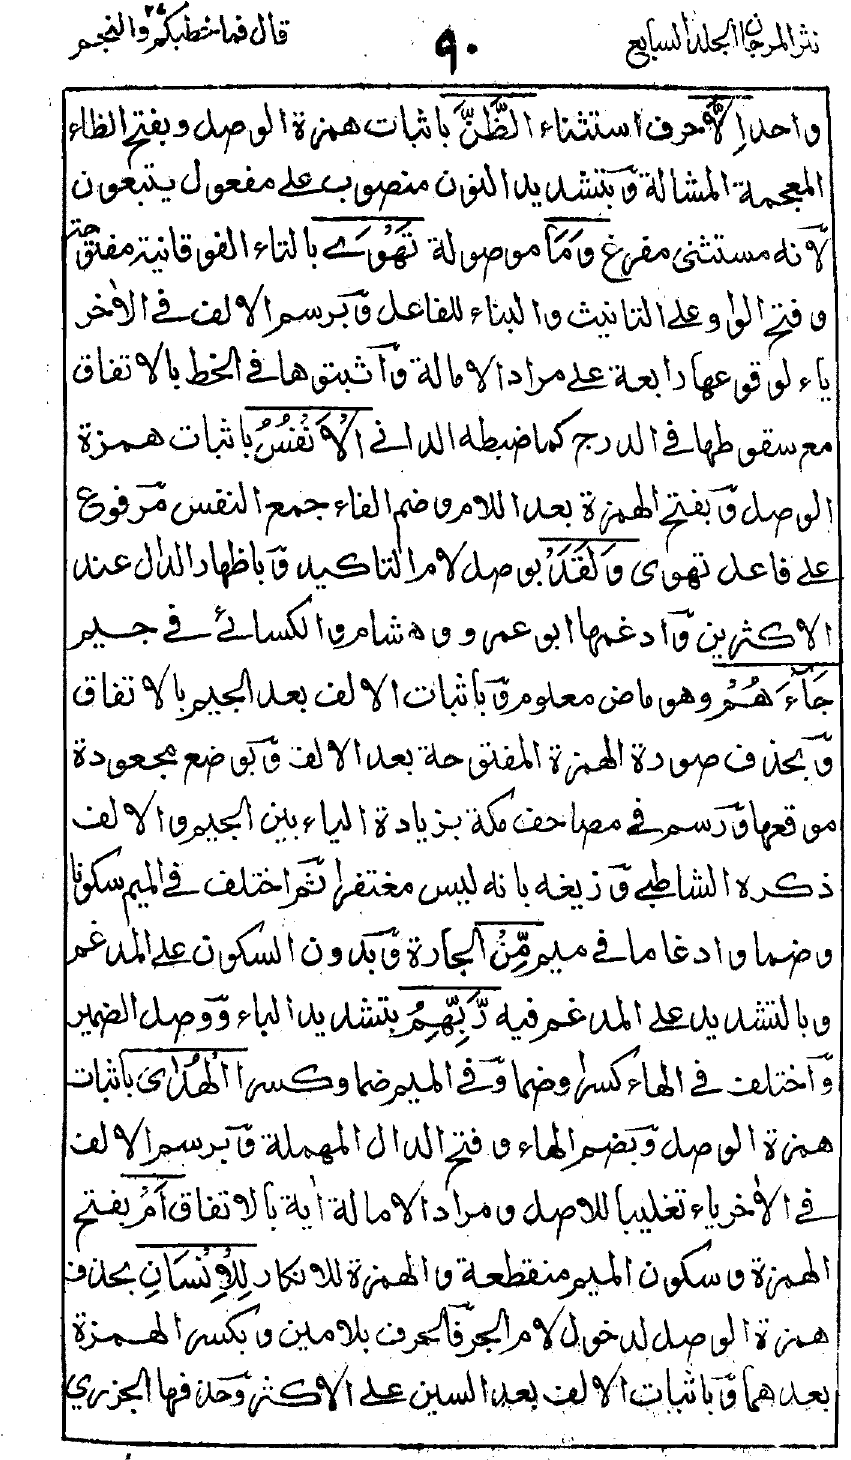 نثر المرجان الجلد السابع
٩٠
قال فما خطبكم ٢٧ والنجم
واحد اِلَّا حرف استثناء الظَّنَّ باثبات همزة الوصل وبفتح الظاء
المعجمة المشالة وبتشديد النون منصوب على مفعول يتبعون
لانه مستثنى مفرغ وَمَا موصولة تَهْوَى بالتاء الفوقانية مفتوحة
وفتح الواو على التانيث والبناء للفاعل وبرسم الالف في الاخر
ياء لوقوعها رابعة على مراد الامالة واثبتوها في الخط بالاتفاق
مع سقوطها في الدرج كما ضبطه الداني الْاَنْفُسُ باثبات همزة
الوصل وبفتح الهمزة بعد اللام وضم الفاء جمع النفس مرفوع
على فاعل تهوى وَلَقَدْ بوصل لام التاكيد وباظهار الدال عند
الاكثرين وادغمها ابو عمرو وهشام والكسائي في جيم
جَآءَهُمْ وهو ماض معلوم وباثبات الالف بعد الجيم بالاتفاق
وبحذف صورة الهمزة المفتوحة بعد الالف وبوضع مجعودة
موقعها ورسم في مصاحف مكة بزيادة الياء بين الجيم والالف
ذكره الشاطبي وزيغه بانه ليس مغتفرا ثم اختلف في الميم سكونا
وضما وادغاما في ميم مِّنْ الجارة وبدون السكون على المدغم
وبالتشديد على المدغم فيه رَّبِّهِمُ بتشديد الباء ووصل الضمير
واختلف في الهاء كسرا وضما وفي الميم ضما وكسرا الْهُدٰى باثبات
همزة الوصل وبضم الهاء وفتح الدال المهملة وبرسم الالف
في الاخر ياء تغليبا للاصل ومراد الامالة اية بالاتفاق اَمْ بفتح
الهمزة وسكون الميم منقطعة والهمزة للانكار لِلْاِنْسَانِ بحذف
همزة الوصل لدخول لام الجر فالحرف بلامين وبكسر الهمزة
بعدهما وباثبات الالف بعد السين على الاكثر وحذفها الجزري